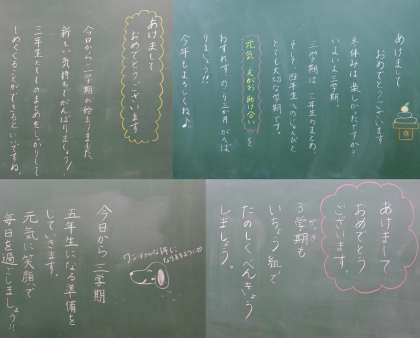 あけまして
おめでとうございます
今日から三学期が始まります。
新しい気持ちでがんばりましょう！
三年生としてのまとめをしっかりして
しめくくることができるといいですね。
あけまして
おめでとう
ございます
冬休みは楽しかったですか？
いよいよ三学期。
三学期は、三年生のまとめ
そして四年生への
とても大切な学期です。
元気 えがお 助け合い を
わすれずのこり三か月がんば
りましょう!!
今年もよろしくね♪
今日から三学期
五年生になる準備を
していきます。
元気に笑顔で
毎日を過ごしましょう!!
あけまして
おめでとう
ございます。
3学期も
いちょう組で
たのしくべんきょう
しましょう。